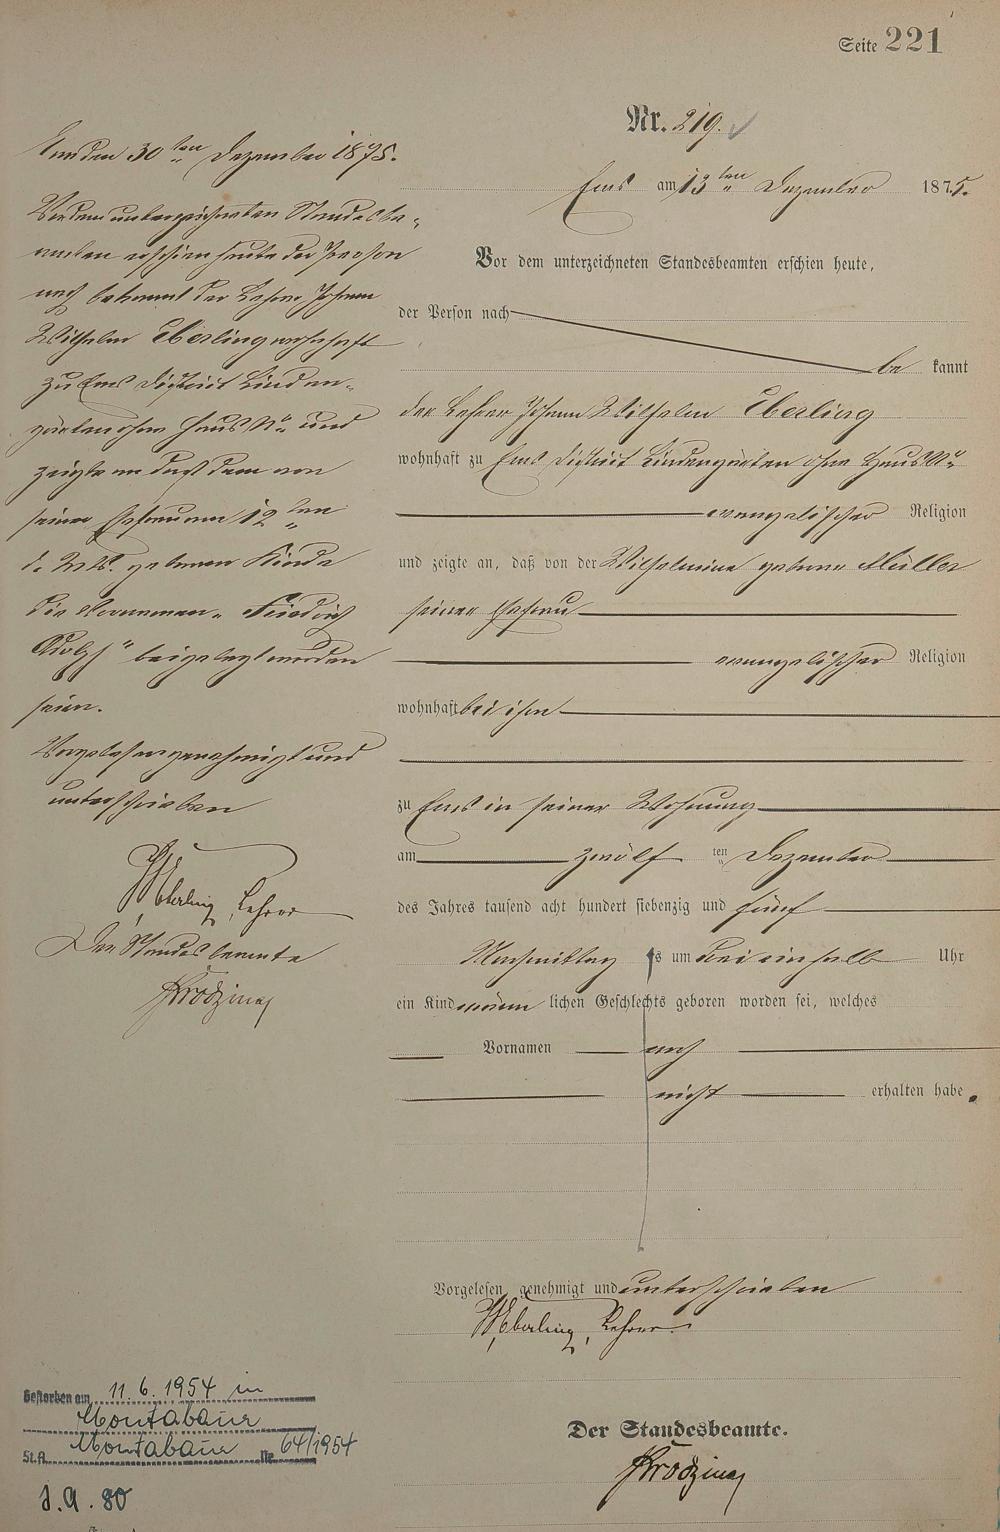 Seite 221
Nr. 219.
Ems am 13ten Dezember 1875.
Vor dem unterzeichneten Standesbeamten erschien heute,
der Person nach
be kannt
der Lehrer Johann Wilhelm Eberling
wohnhaft zu Ems District Lindengarten ohne Haus No
evangelischer Religion
und zeigte an, daß von der Wilhelmine geborne Müller
seiner Ehefrau
evangelischer Religion
wohnhaft bei ihm
zu Ems in seiner Wohnung
am zwölf ten Dezember
des Jahres tausend acht hundert siebenzig und fünf
Nachmittag s um drei einhalb Uhr
ein Kind männ lichen Geschlechts geboren worden sei, welches
Vornamen noch
nicht erhalten habe.
Vorgelesen, genehmigt und unterschrieben
W. Eberling, Lehrer.
Der Standesbeamte.
Ems den 30ten Dezember 1875.
Vor dem unterzeichneten Standesbe-
amten erschien heute der Person
nach bekannt der Lehrer Johann
Wilhelm Eberling wohnhaft
zu Ems District Linden-
garten ohne Haus No und
zeigte an daß dem von
seiner Ehefrau am 12ten
d. Mts. gebornen Kinde
die Vornamen „Friedrich
Adolph" beigelegt worden
seien.
Vorgelesen genehmigt und
unterschrieben
W. Eberling, Lehrer
Der Standesbeamte
Gestorben am 11.6.1954 in
Montabaur
St.A. Montabaur Nr. 64/1954